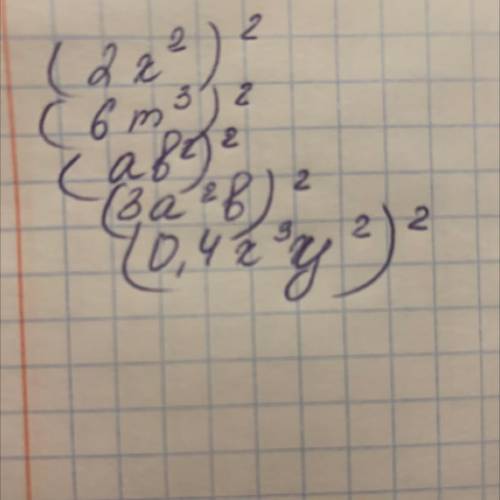 (2x²)²
(6m³)²
(ab²)²
(3a²b)²
(0,4x³y²)²